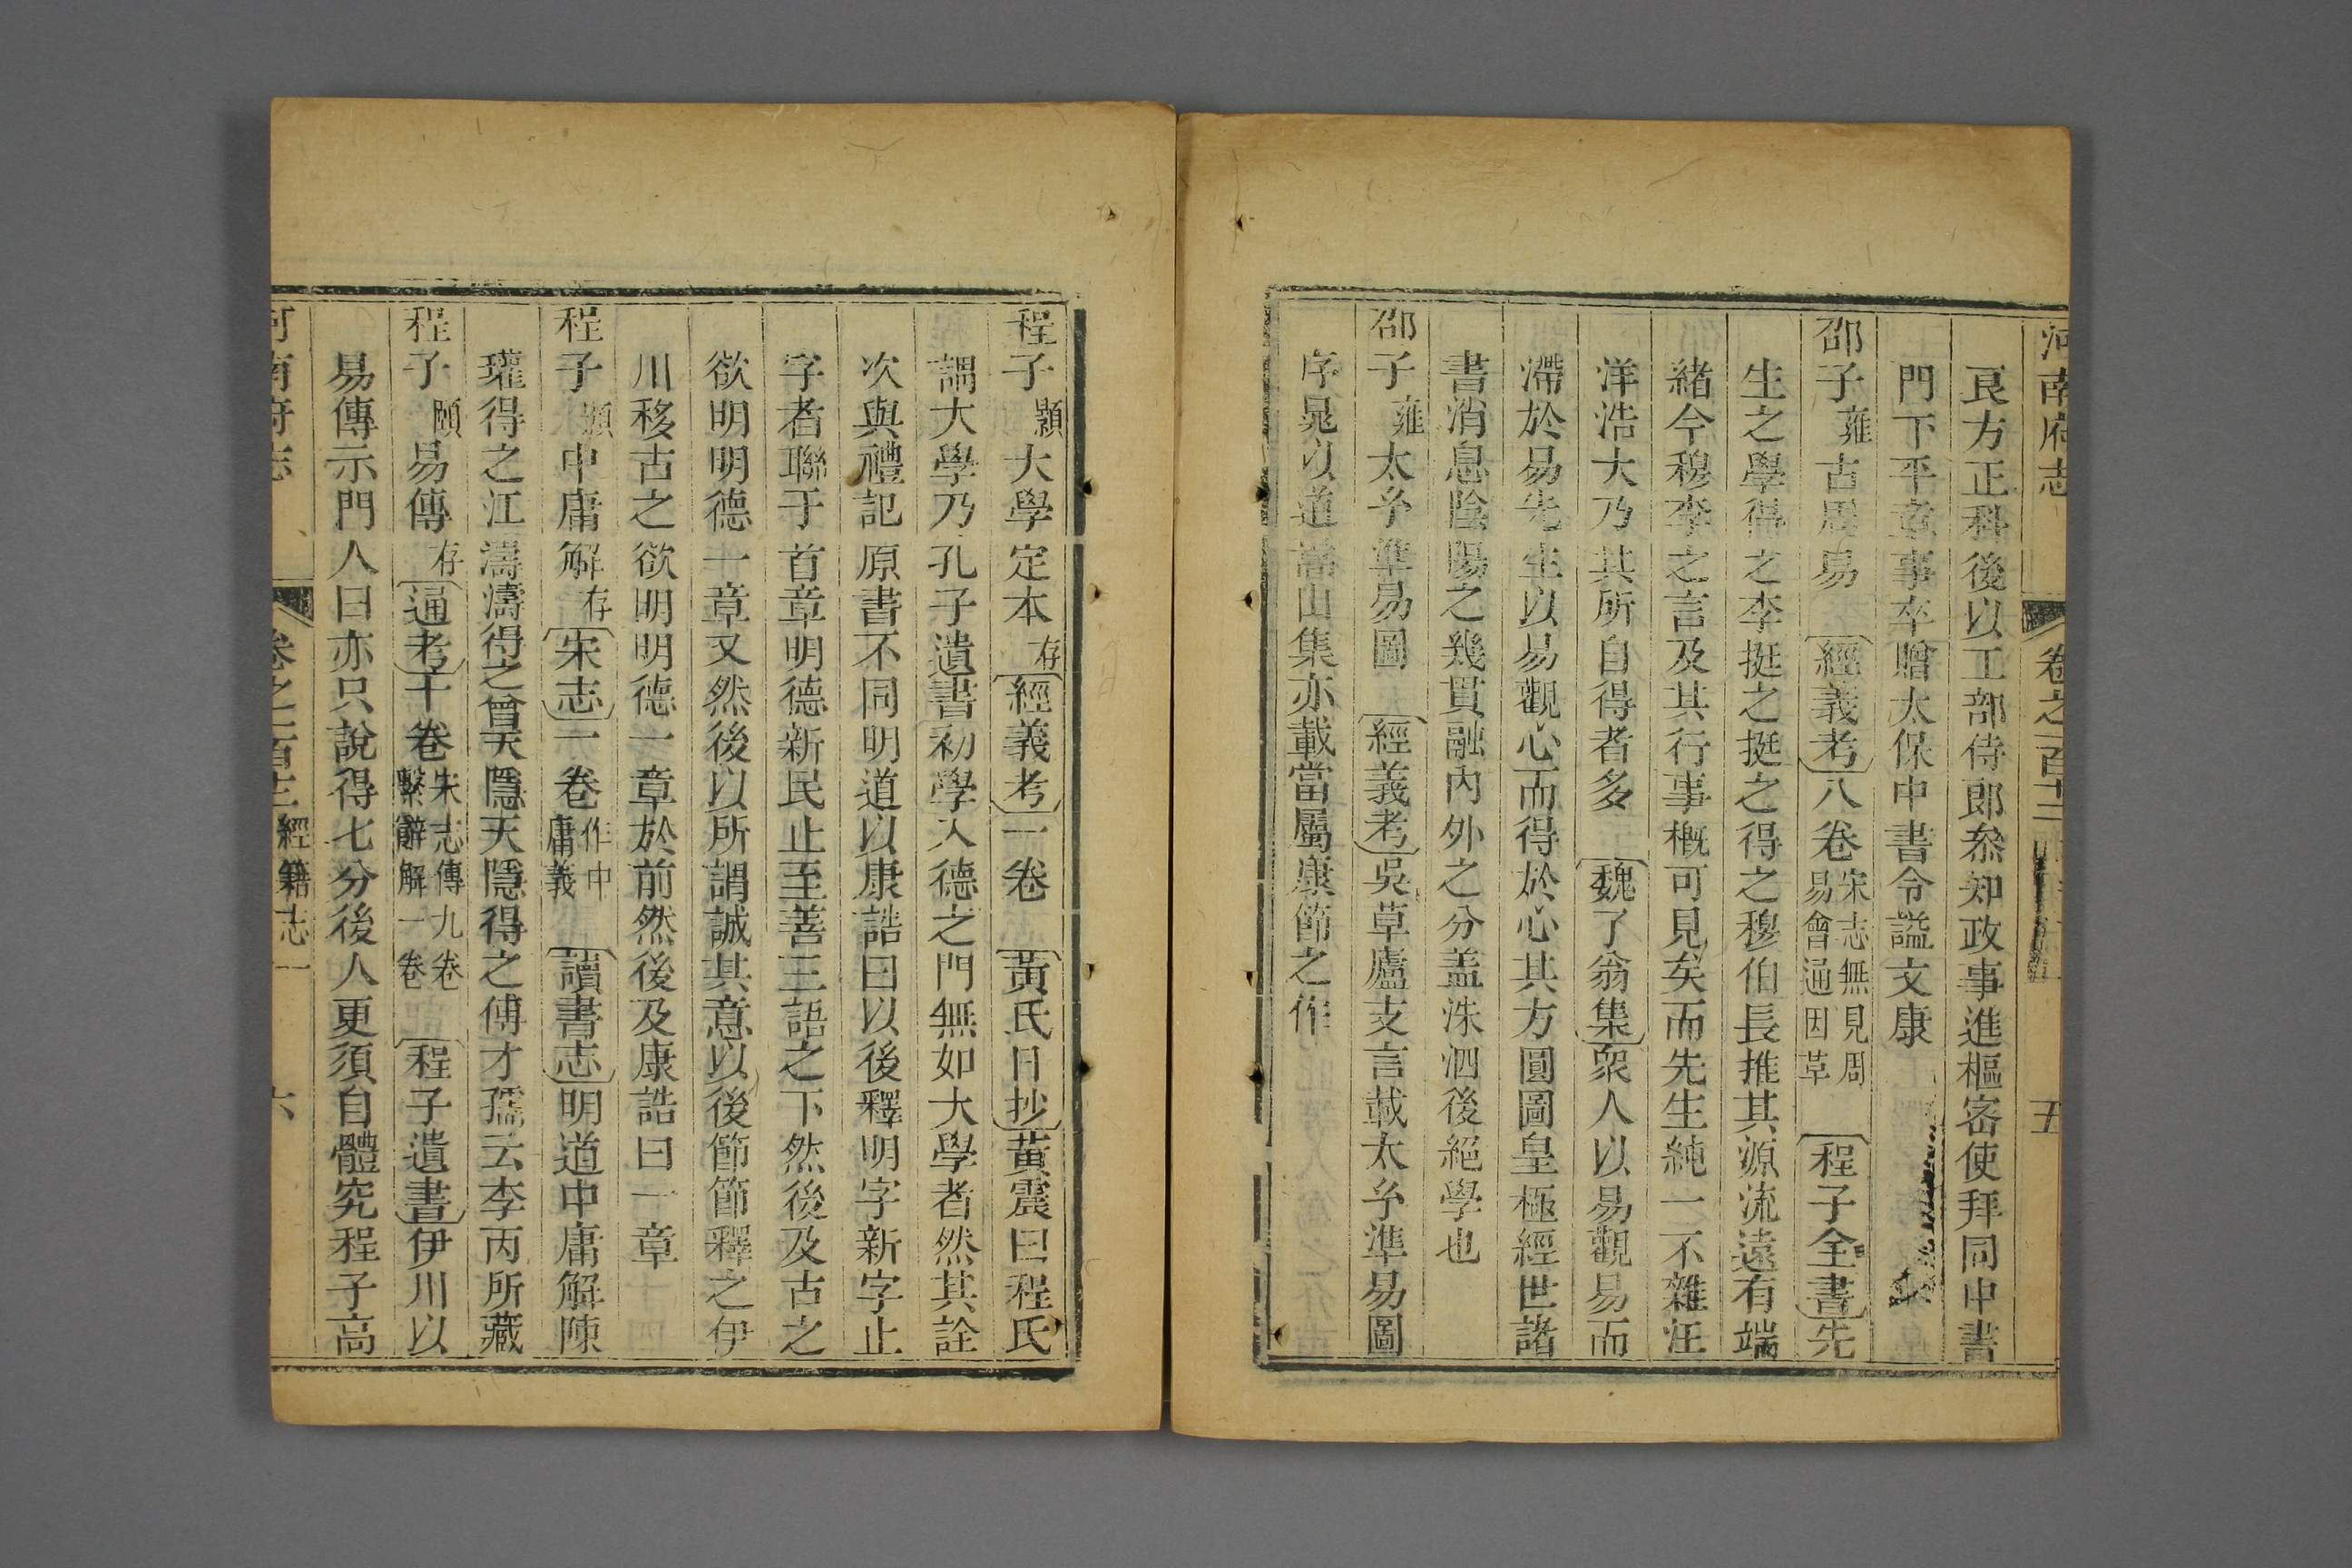 河南府志 卷之一百十三 五
艮方正科後以工部侍郎叅知政事進樞密使拜同中書
門下平章事卒贈太保中書令謚文康
邵子雍古周易 經義考八卷宋志無見周易會通因革 程子全書先
生之學得之李挺之挺之得之穆伯長推其源流遠有端
緒今穆李之言及其行事概可見矣而先生純一不雜汪
洋浩大乃其所自得者多 魏了翁集衆人以易觀易而
滯於易先生以易觀心而得於心其方圓圖皇極經世諸
書消息陰陽之幾貫融內外之分盖洙泗後絕學也
邵子雍太𤣥準易圖 經義考吳草廬支言載太𤣥準易圖
序晁以道嵩山集亦載當屬康節之作
程子顥大學定本存經義考一卷 黃氏日抄黃震曰程氏
謂大學乃孔子遺書初學入德之門無如大學者然其詮
次與禮記原書不同明道以康誥曰以後釋明字新字止
字者聯于首章明德新民止至善三語之下然後及古之
欲明明德一章又然後以所謂誠其意以後節節釋之伊
川移古之欲明明德一章於前然後及康誥曰一章
程子顥中庸解存宋志一卷作中庸義 讀書志明道中庸解陳
瓘得之江濤濤得之曾天隱天隱得之傅才孺云李丙所藏
程子頤易傳存通考十卷朱志傳九卷繫辭解一卷 程子遺書伊川以
易傳示門人曰亦只說得七分後人更須自體究程子高
河南府志 卷之一百十三經籍志一 六